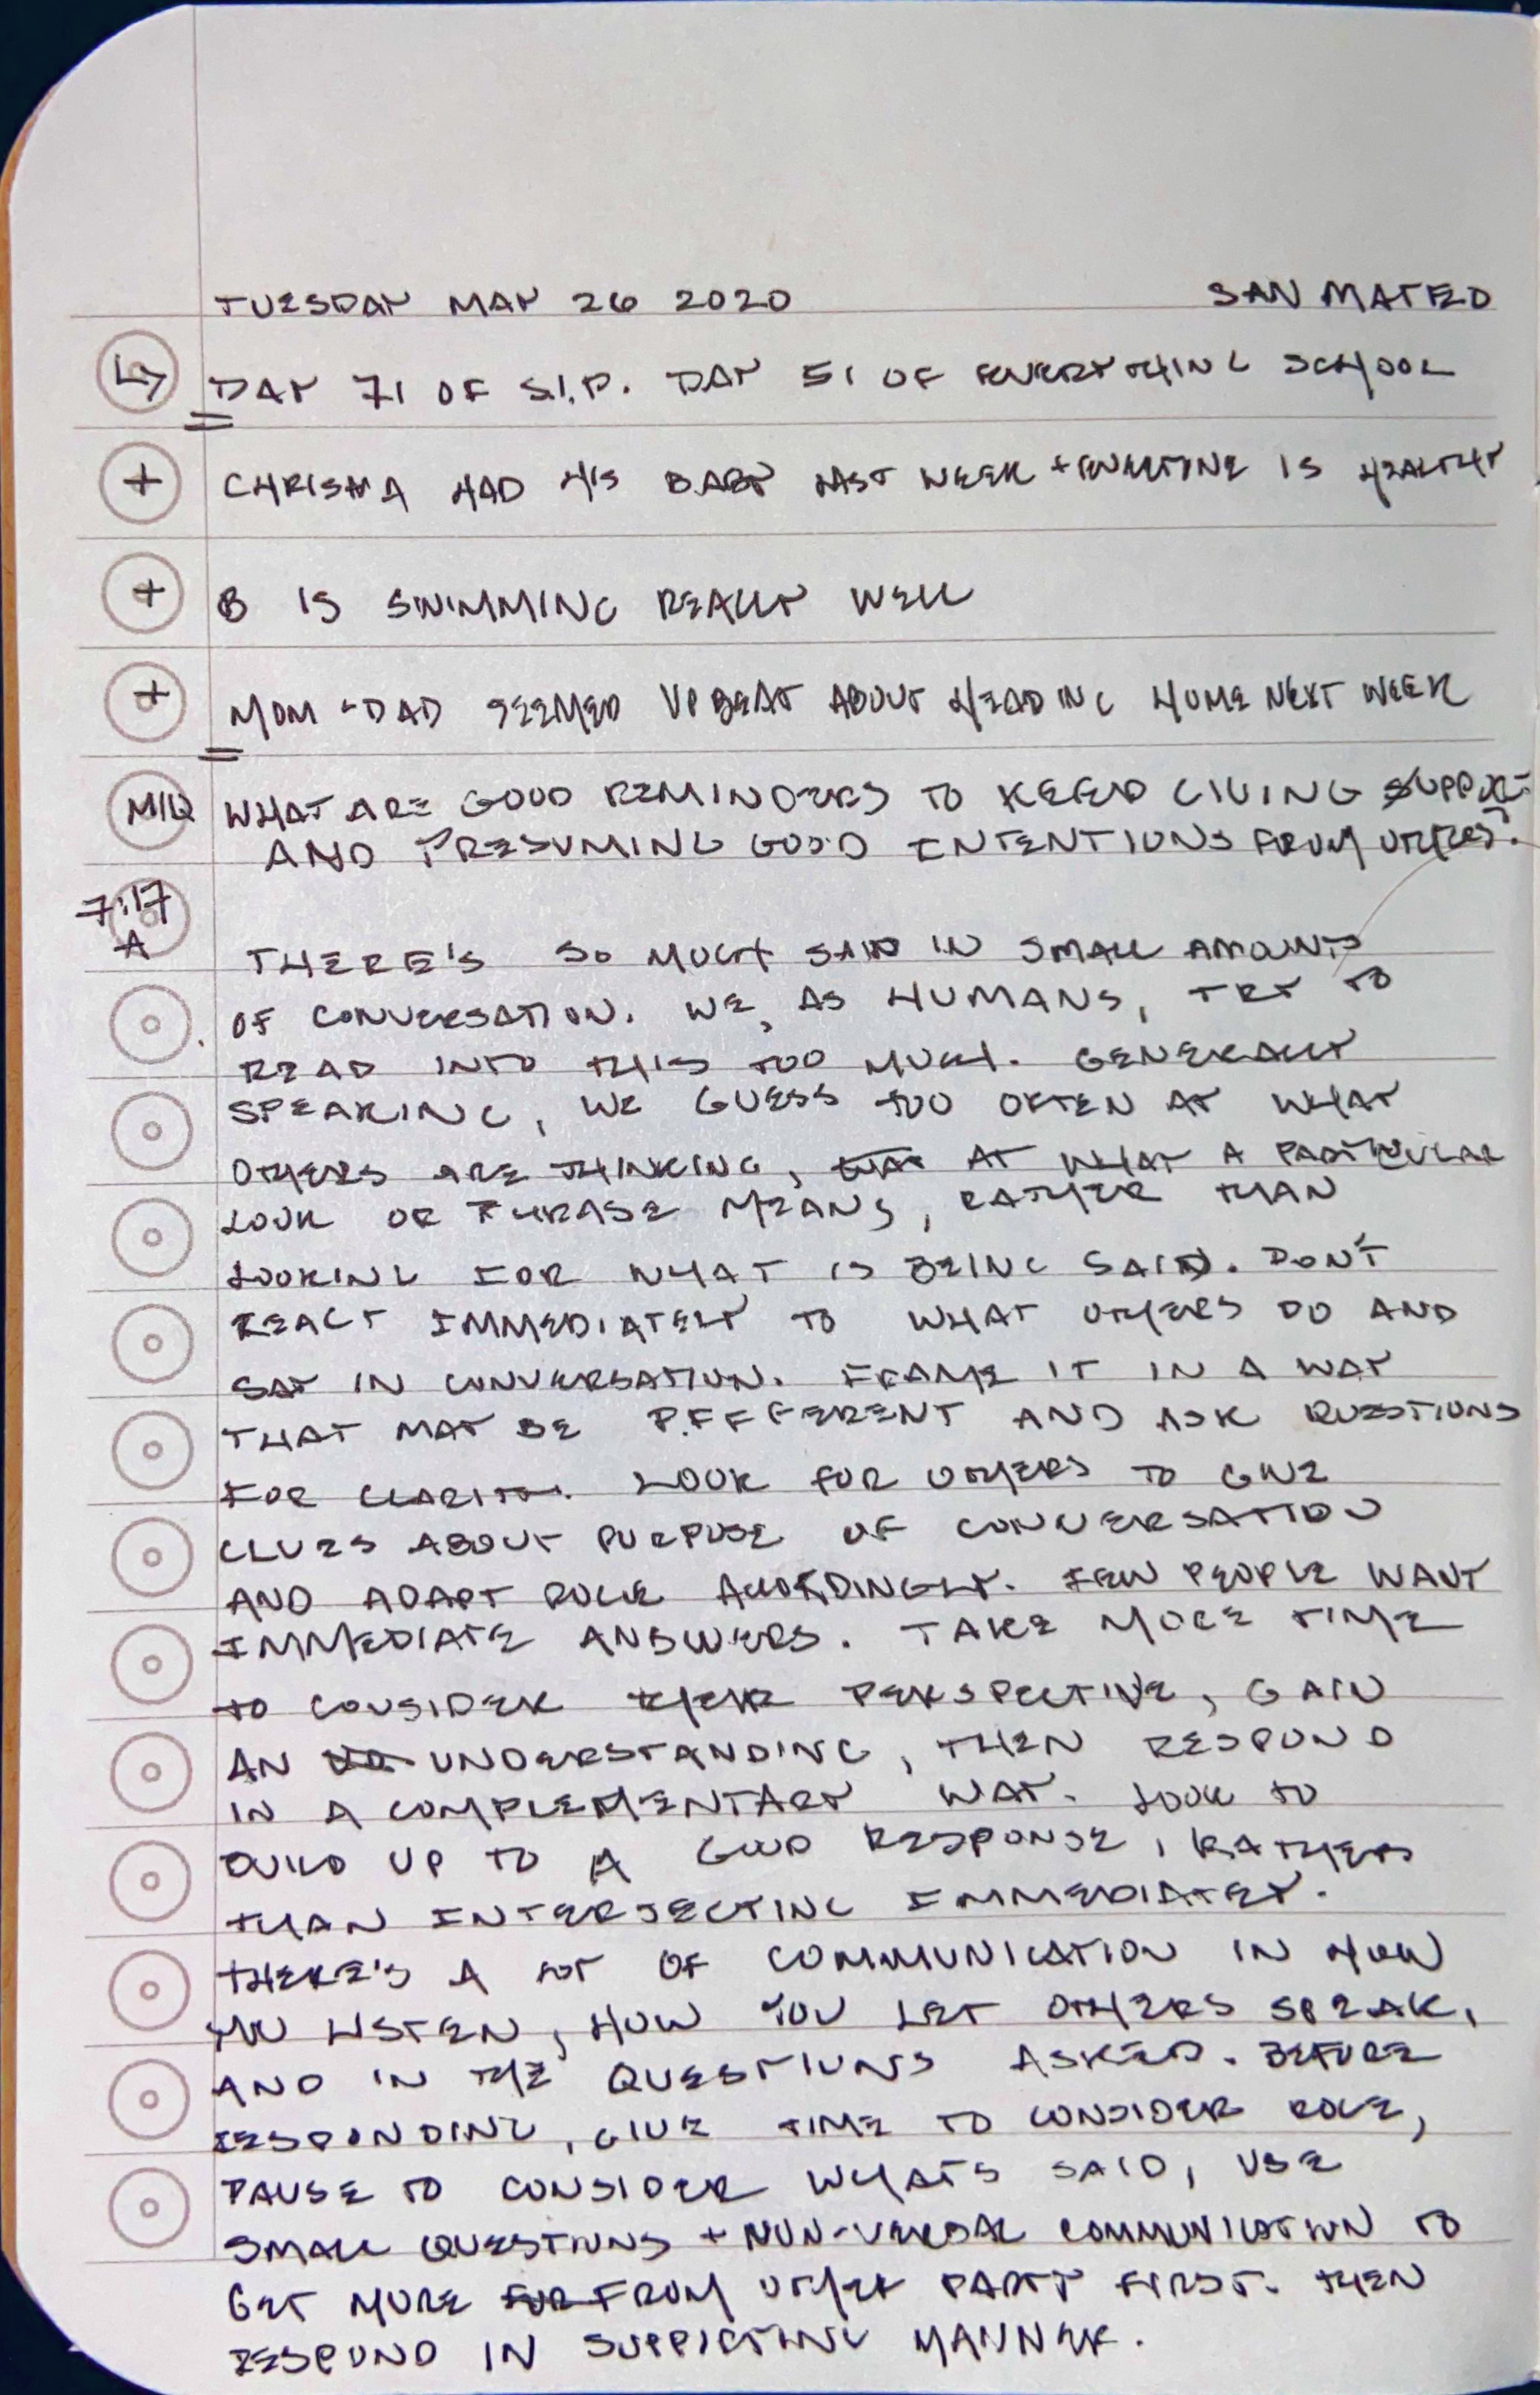 TUESDAY MAY 26 2020 SAN MATEO
DAY 71 OF S.I.P. DAY 51 OF EVERYTHING SCHOOL
+ HAD HIS BABY LAST WEEK + EVERYONE IS HEALTHY
+ B IS SWIMMING REALLY WELL
+ MOM + DAD SEEMED UPBEAT ABOUT HEADING HOME NEXT WEEK
MIQ WHAT ARE GOOD REMINDERS TO KEEP GIVING SUPPORT
AND PRESUMING GOOD INTENTIONS FROM OTHERS?
7:17
A
THERE'S SO MUCH SAID IN SMALL AMOUNTS
OF CONVERSATION. WE, AS HUMANS, TRY TO
READ INTO THIS TOO MUCH. GENERALLY
SPEAKING, WE GUESS TOO OFTEN AT WHAT
OTHERS ARE THINKING, AT WHAT A PARTICULAR
LOOK OR PHRASE MEANS, RATHER THAN
LOOKING FOR WHAT IS BEING SAID. DON'T
REACT IMMEDIATELY TO WHAT OTHERS DO AND
SAY IN CONVERSATION. FRAME IT IN A WAY
THAT MAY BE DIFFERENT AND ASK QUESTIONS
FOR CLARITY. LOOK FOR OTHERS TO GIVE
CLUES ABOUT PURPOSE OF CONVERSATION
AND ADAPT ROLE ACCORDINGLY. FEW PEOPLE WANT
IMMEDIATE ANSWERS. TAKE MORE TIME
TO CONSIDER THEIR PERSPECTIVE, GAIN
AN UNDERSTANDING, THEN RESPOND
IN A COMPLEMENTARY WAY. LOOK TO
BUILD UP TO A GOOD RESPONSE, RATHER
THAN INTERJECTING IMMEDIATELY.
THERE'S A LOT OF COMMUNICATION IN HOW
YOU LISTEN, HOW YOU LET OTHERS SPEAK,
AND IN THE QUESTIONS ASKED. BEFORE
RESPONDING, GIVE TIME TO CONSIDER ROLE,
PAUSE TO CONSIDER WHATS SAID, USE
SMALL QUESTIONS + NON-VERBAL COMMUNICATION TO
GET MORE FROM OTHER PARTY FIRST. THEN
RESPOND IN SUPPORTING MANNER.